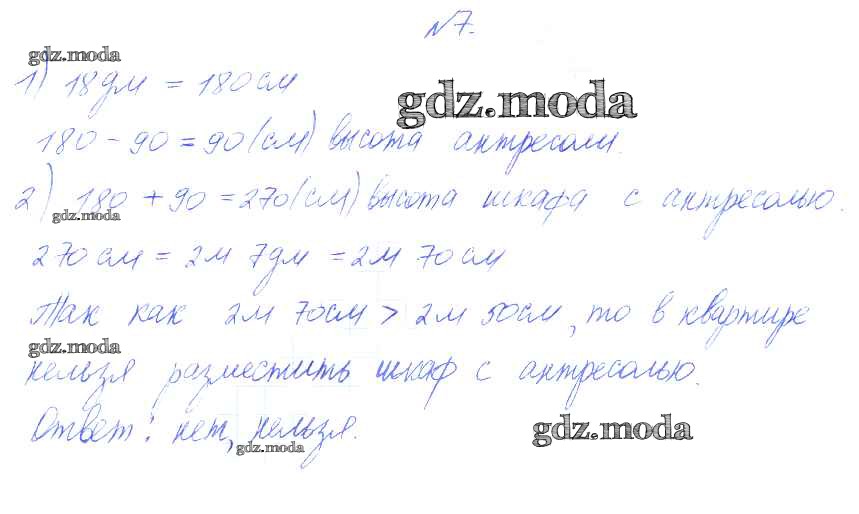 №7.
gdz.moda
1) 18дм = 180см
gdz.moda
180 - 90 = 90(см) высота антресоли.
2) 180 + 90 = 270(см) высота шкафа с антресолью.
gdz.moda
270см = 2м 7дм = 2м 70см
Так как 2м 70см > 2м 50см, то в квартире
gdz.moda
нельзя разместить шкаф с антресолью.
Ответ: нет, нельзя.
gdz.moda
gdz.moda